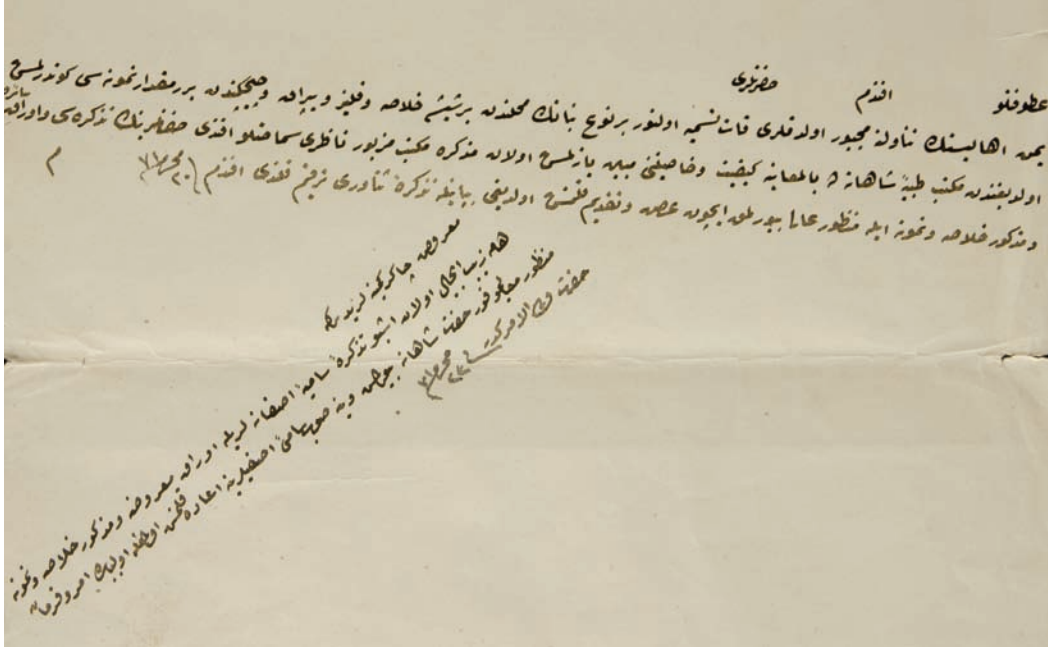 عطوفتلو افندم حضرتلری
یمن اهالیسنك تناولنه مجبور اولدقلری قات تسمیه اولنور بر نوع نباتك محلندن بر شیشه خلاصه وفلیز ویپراق وچیچكندن بر مقدار نمونه سی كوندرلمش
اولدیغندن مكتب طبیهٔ شاهانه ده بالمعاینه كیفیت وخاصیتنی مبین یازلمش اولان مذكره مكتب مزبور ناظری سماحتلو افندی حضرتلرینك تذكره سی واوراق
ومذكور خلاصه ونمونه ایله منظور عالی بیورلمق ایچون عرض وتقدیم قلنمش اولدیغی بیانیله تذكرهٔ ثناوری ترقیم قلندی افندم
م
معروض چاكر كمینه لریدركه
هامه زیب ابجال اولان اشبو تذكرهٔ سامیهٔ آصفانه لریله اوراق معروضه ومذكور خلاصه ونمونه
منظور حضرت شاهانه وینه صوب سامئ آصفیلرینه اعاده قلنمش اولمغله اولبابده امر وفرمان
حضرت ولی الامركدر